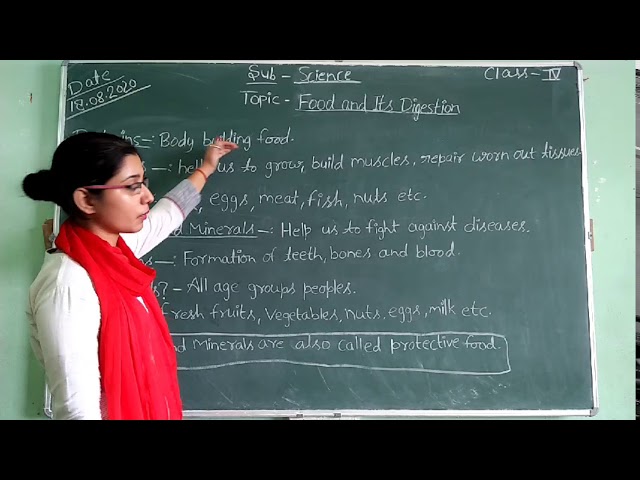 Date
18.08.2020
Sub - Science
Class - IV
Topic - Food and Its Digestion
Body building food.
help us to grow, build muscles, repair worn out tissues
eggs, meat, fish, nuts etc.
Minerals -: Help us to fight against diseases.
-: Formation of teeth, bones and blood.
? - All age groups peoples.
fresh fruits, Vegetables, nuts, eggs, milk etc.
Minerals are also called protective food.